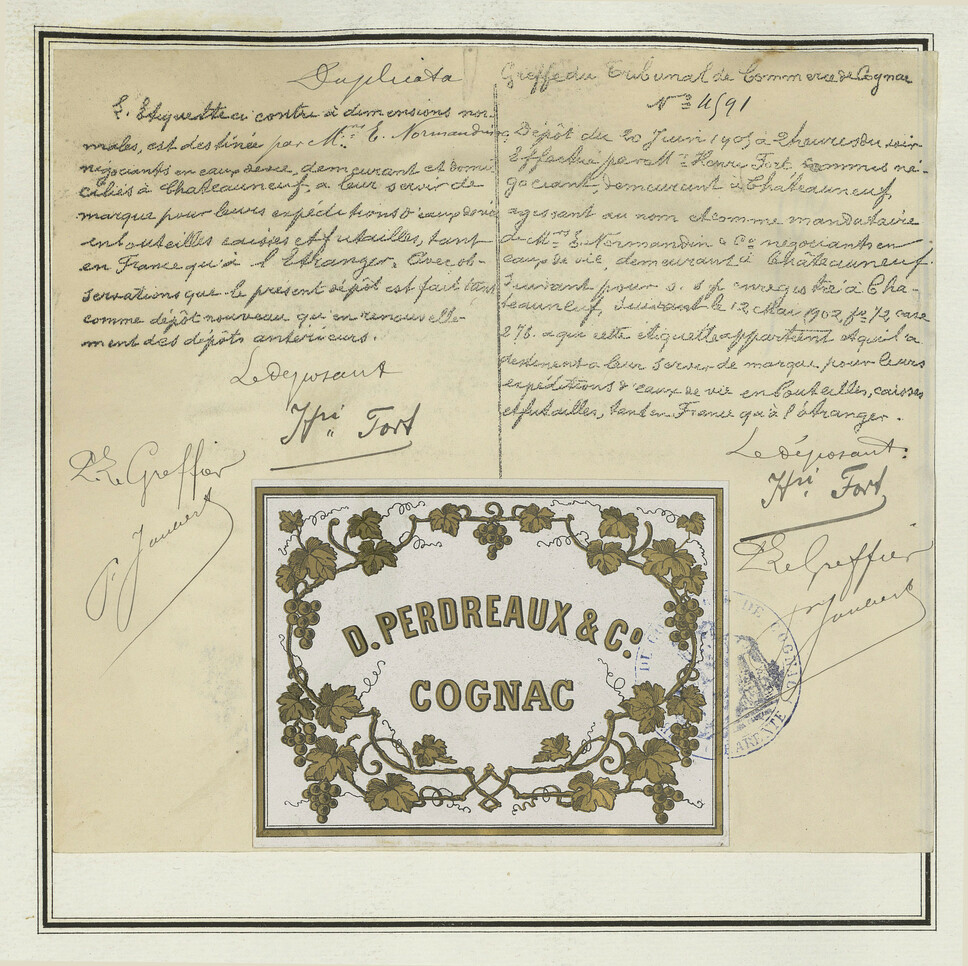 Duplicata
L'Etiquette ci contre à dimensions nor-
males, est destinée par M.rs E. Normandin & Co
négociants en eaux de vie, demeurant et domi-
ciliés à Chateauneuf, a leur servir de
marque pour leurs expéditions d'eaux de vie
en bouteilles caisses et futailles, tant
en France qu'à l'Etranger. Avec ob-
servations que le présent dépôt est fait tant
comme dépôt nouveau qu'en renouvelle-
ment des dépôts antérieurs.
Le déposant
Hri Fort
P. Le Greffier
Joubert
Greffe du Tribunal de Commerce de Cognac
N° 4591
Dépôt du 20 Juin 1905 à 2 heures du soir
Effectué par M.r Henri Fort, commis né-
gociant, demeurant à Chateauneuf,
agissant au nom et comme mandataire
de M.rs E. Normandin & Co négociants en
eaux de vie, demeurant à Châteauneuf.
Suivant pour s. s. p. enregistré à Cha-
teauneuf, suivant le 12 Mai 1902, fo 72, case
276. a que cette etiquette appartient et qu'il a
destinent a leur servir de marque pour leurs
expéditions d'eaux de vie en bouteilles, caisses
et futailles, tant en France qu'à l'étranger.
Le déposant.
Hri Fort
P. Le Greffier
Joubert
D. PERDREAUX & Co.
COGNAC
DE COGNAC
CHARENTE